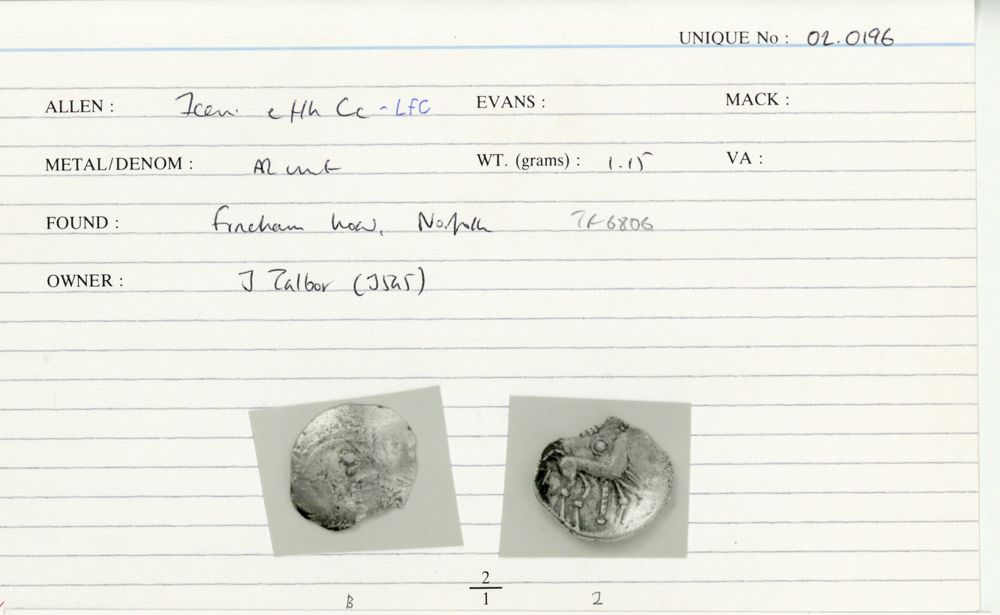 UNIQUE No : 02.0196
ALLEN : Iceni Cc - LFC EVANS : MACK :
METAL/DENOM : AR unit WT. (grams) : 1.15 VA :
FOUND : Fincham, Norfolk TF 6806
OWNER : J Talbot
2
1
B 2